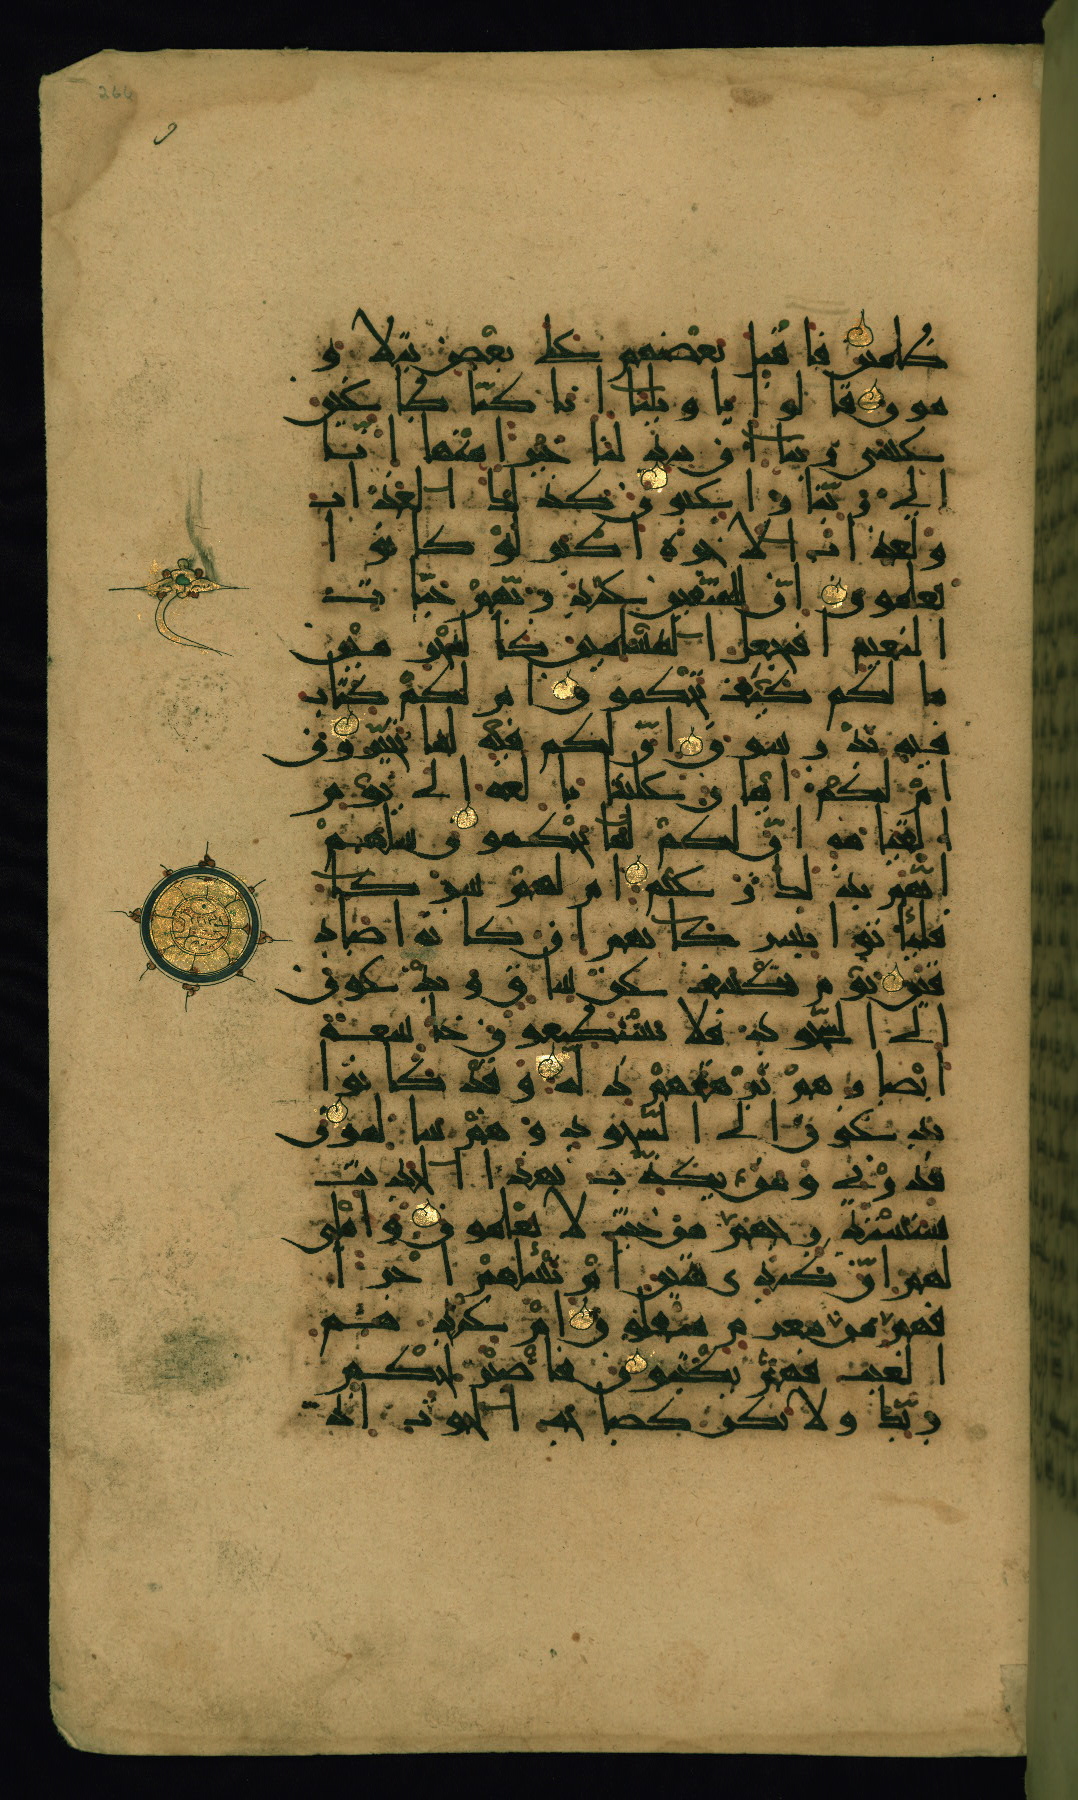 266
ظالمين فاقبل بعضهم على بعض يتلاو
مون قالوا يا ويلنا انا كنا طاغين
عسى ربنا ان يبدلنا خيرا منها انا
الى ربنا راغبون كذلك العذاب
ولعذاب الاخرة اكبر لو كانوا
يعلمون ان للمتقين عند ربهم جنات
النعيم افنجعل المسلمين كالمجرمين
ما لكم كيف تحكمون ام لكم كتاب
فيه تدرسون ان لكم فيه لما تخيرون
ام لكم ايمان علينا بالغة الى يوم
القيامة ان لكم لما تحكمون سلهم
ايهم بذلك زعيم ام لهم شركا
فلياتوا بشركائهم ان كانوا صاد
قين يوم يكشف عن ساق ويدعون
الى السجود فلا يستطيعون خاشعة
ابصارهم ترهقهم ذلة وقد كانوا
يدعون الى السجود وهم سالمون
فذرني ومن يكذب بهذا الحديث
سنستدرجهم من حيث لا يعلمون واملي
لهم ان كيدي متين ام تسئلهم اجرا
فهم من مغرم مثقلون ام عندهم
الغيب فهم يكتبون فاصبر لحكم
ربك ولا تكن كصاحب الحوت اذ